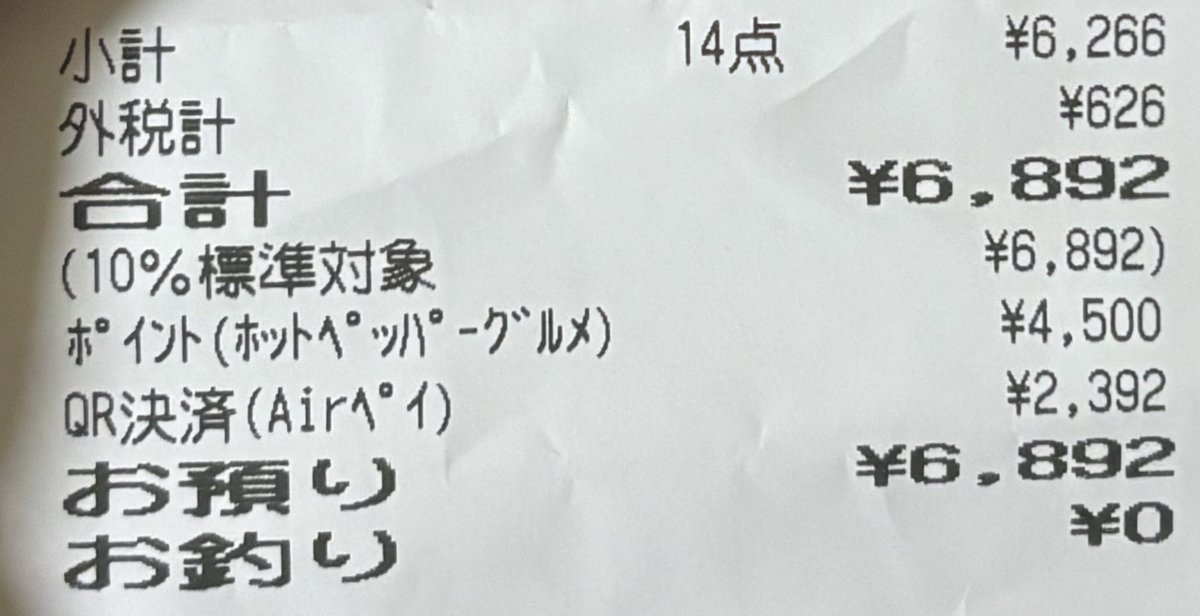 小計 14点 ¥6,266
外税計 ¥626
合計 ¥6,892
(10%標準対象 ¥6,892)
ﾎﾟｲﾝﾄ(ﾎｯﾄﾍﾟｯﾊﾟｰｸﾞﾙﾒ) ¥4,500
QR決済(Airﾍﾟｲ) ¥2,392
お預り ¥6,892
お釣り ¥0